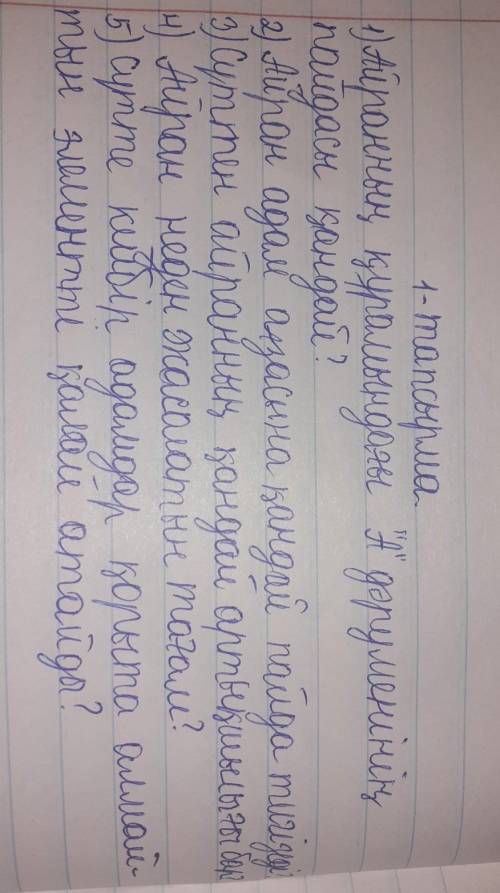 1-тапсырма.
1) Айранның құрамындағы "А" дәруменінің
пайдасы қандай?
2) Айран адам ағзасына қандай пайда тигізеді
3) Сүттен айранның қандай артықшылығы бар
4) Айран неден жасалатын тағам?
5) Сүтте кейбір адамдар қорыта алмай-
тын элементті қалай атайды?